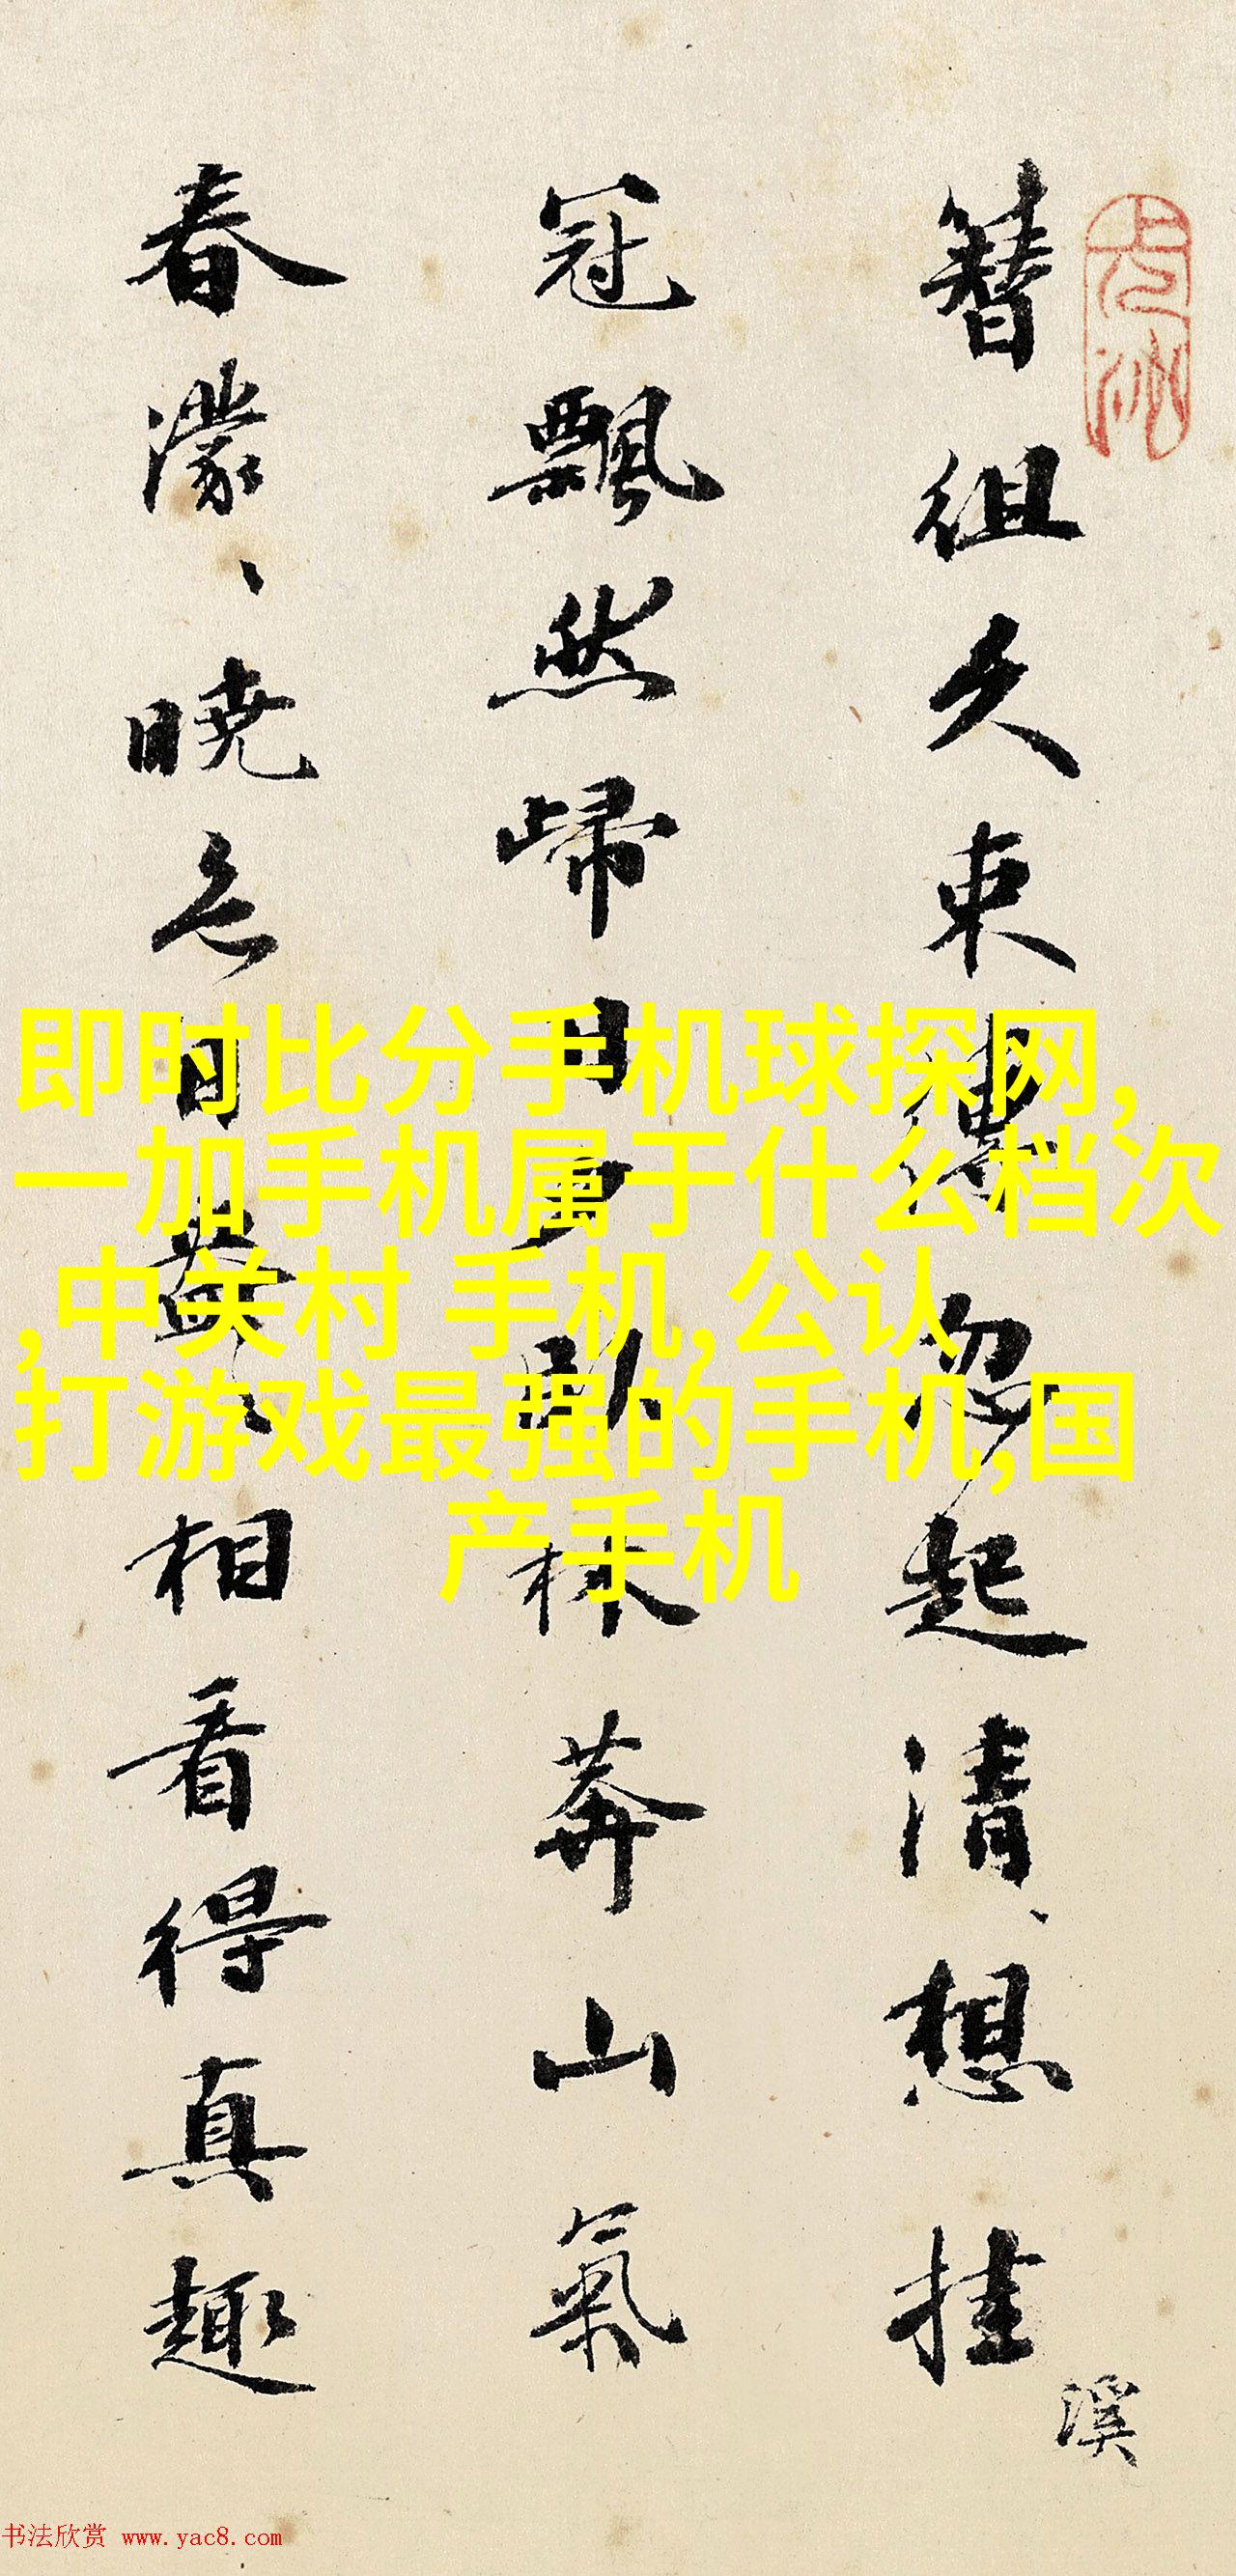 簪組久束縛忽起清、想挂
溪
冠飄然歸卧林莽山氣
春濛、曉色日益、相看得真趣
即时比分手机球探网,
一加手机属于什么档次
,中关村 手机,公认
打游戏最强的手机,国
产手机
书法欣赏 www.yac8.com